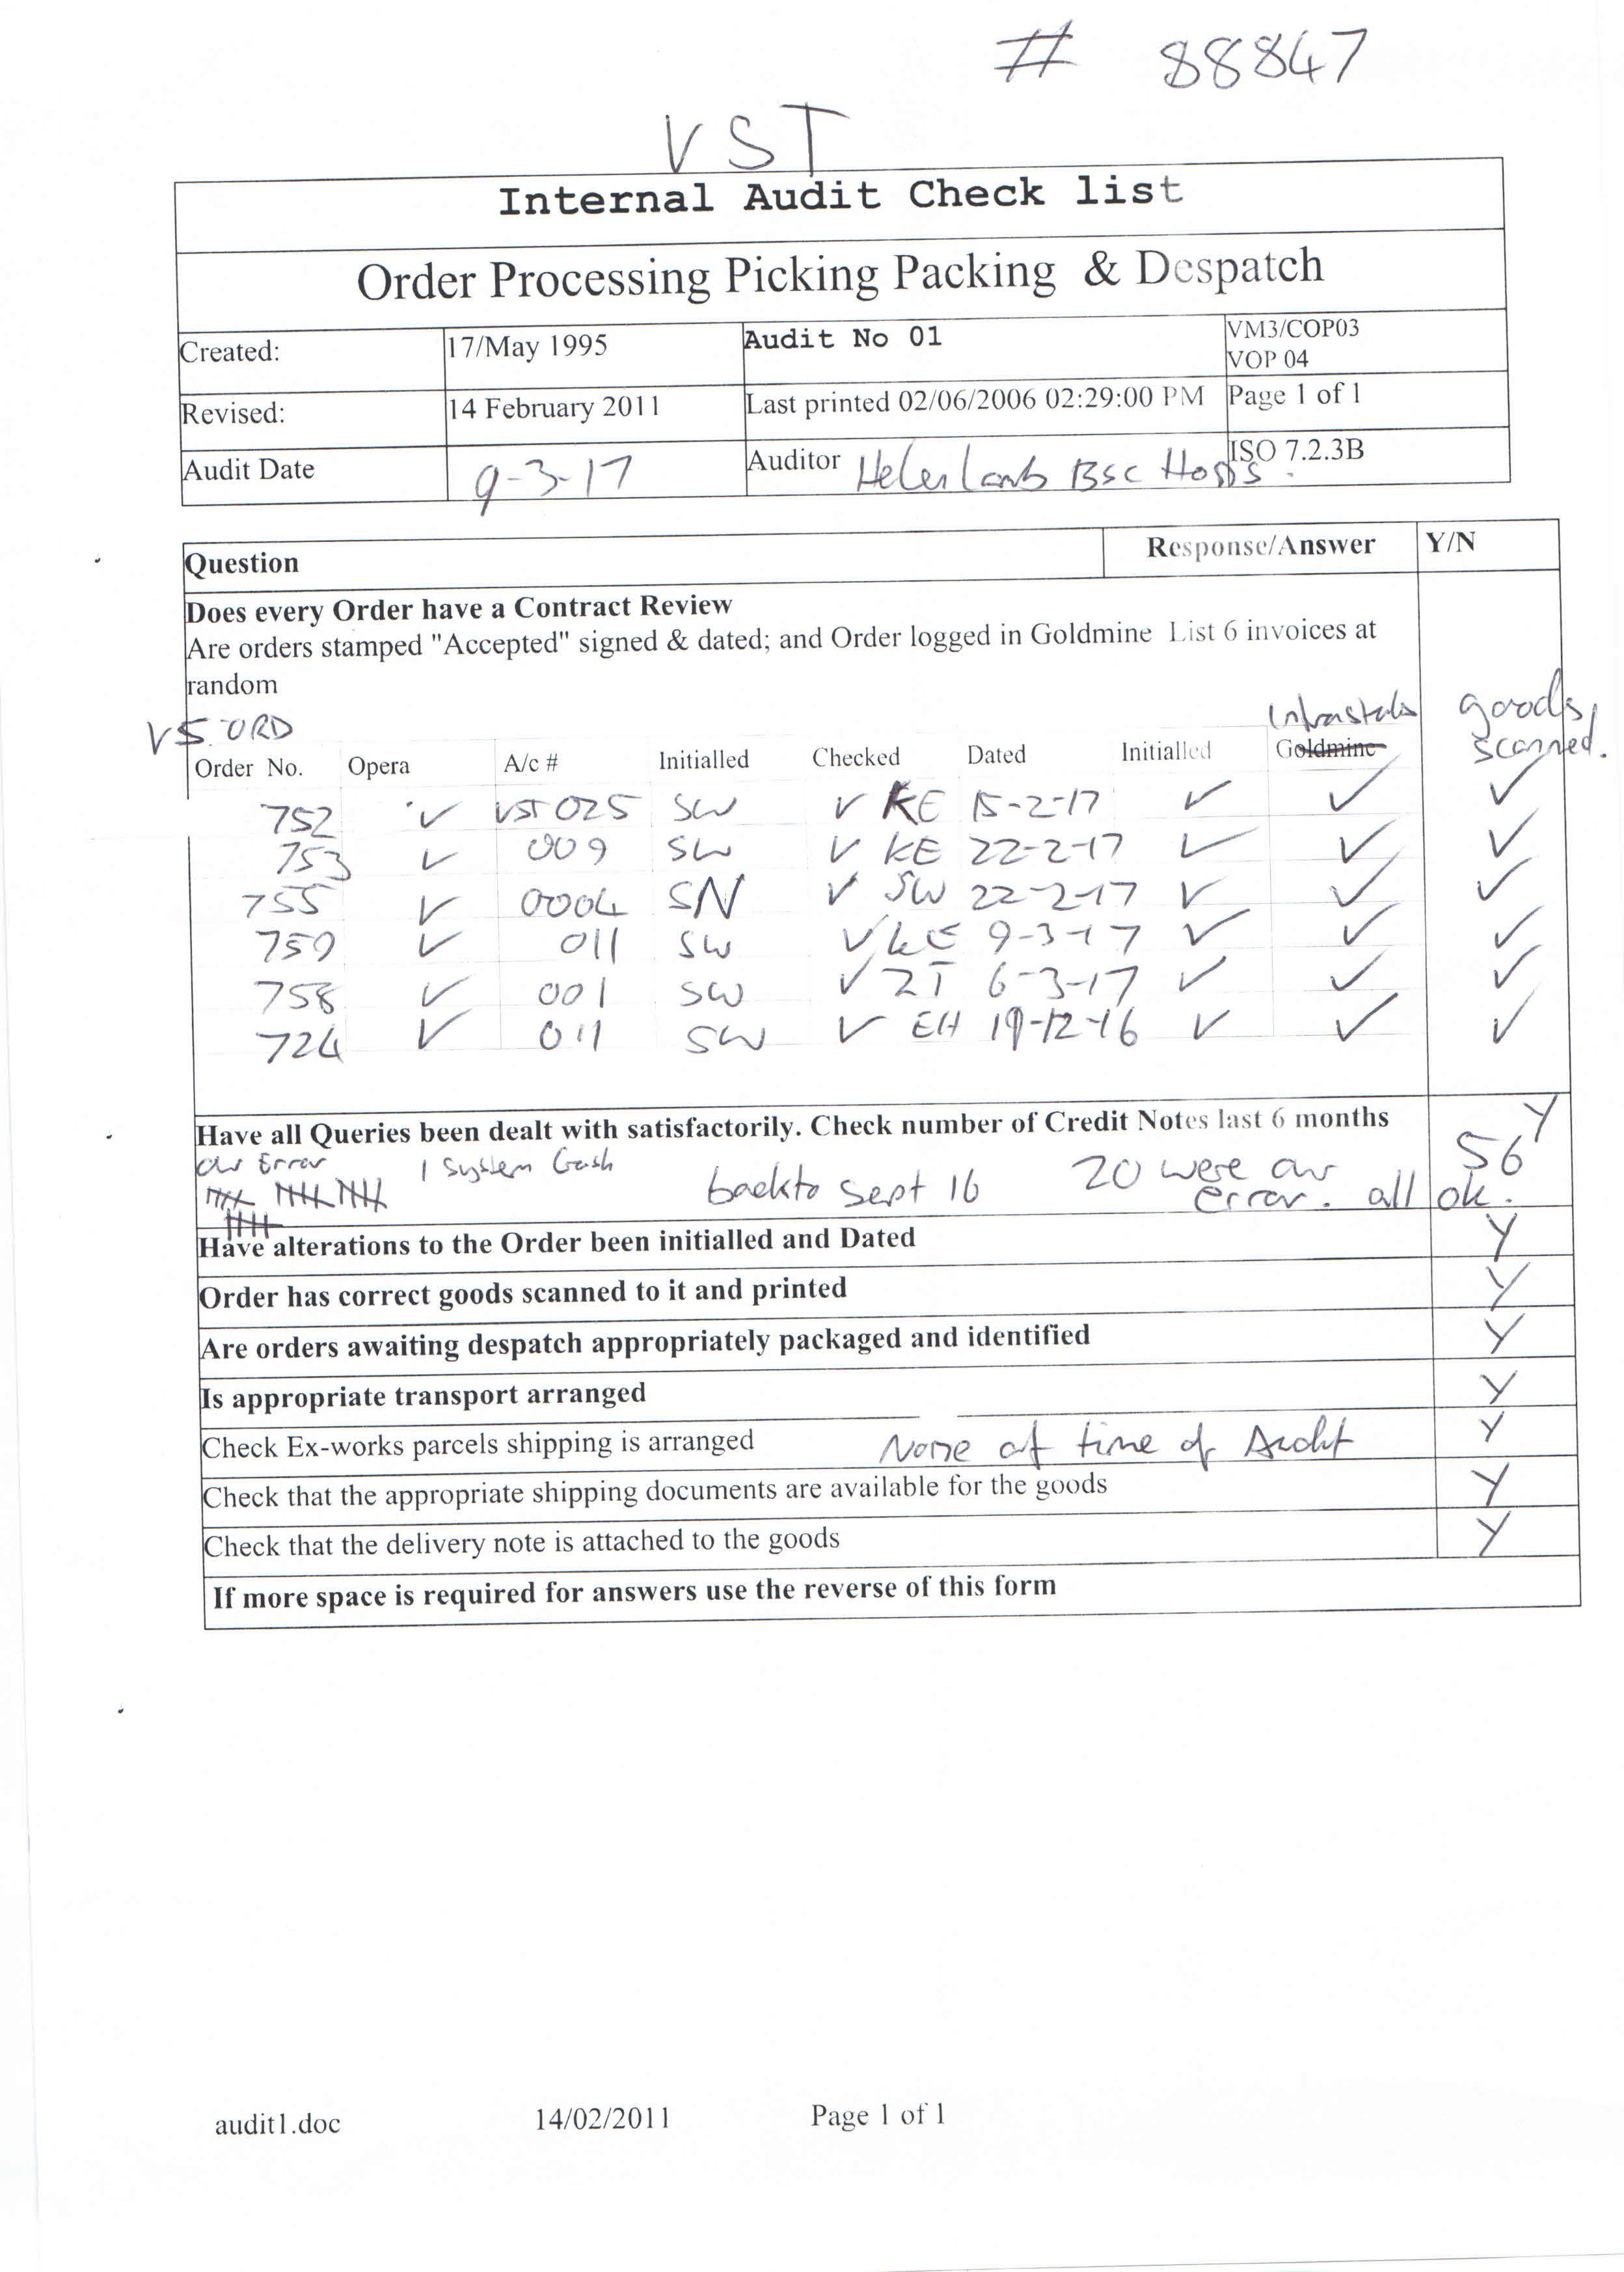 # 88847
VST
Internal Audit Check list
Order Processing Picking Packing & Despatch
Created: 17/May 1995 Audit No 01 VM3/COP03
VOP 04
Revised: 14 February 2011 Last printed 02/06/2006 02:29:00 PM Page 1 of 1
Audit Date 9-3-17 Auditor Helen Lamb Bsc Hons. ISO 7.2.3B
Question Response/Answer Y/N
Does every Order have a Contract Review
Are orders stamped "Accepted" signed & dated; and Order logged in Goldmine List 6 invoices at
random
VS ORD goods
scanned.
Order No. Opera A/c # Initialled Checked Dated Initialled Goldmine
752 ✓ VST 025 SW ✓ KE 15-2-17 ✓ ✓ ✓
753 ✓ 009 SW ✓ KE 22-2-17 ✓ ✓ ✓
755 ✓ 0004 SN ✓ SW 22-2-17 ✓ ✓ ✓
759 ✓ 011 SW ✓ KE 9-3-17 ✓ ✓ ✓
758 ✓ 001 SW ✓ ZT 6-3-17 ✓ ✓ ✓
724 ✓ 011 SW ✓ EH 19-12-16 ✓ ✓ ✓
Have all Queries been dealt with satisfactorily. Check number of Credit Notes last 6 months Y
our Error 1 System Crash 56
back to Sept 16 20 were our
error. all ok.
Have alterations to the Order been initialled and Dated Y
Order has correct goods scanned to it and printed Y
Are orders awaiting despatch appropriately packaged and identified Y
Is appropriate transport arranged Y
Check Ex-works parcels shipping is arranged None at time of Audit Y
Check that the appropriate shipping documents are available for the goods Y
Check that the delivery note is attached to the goods Y
If more space is required for answers use the reverse of this form
audit1.doc 14/02/2011 Page 1 of 1